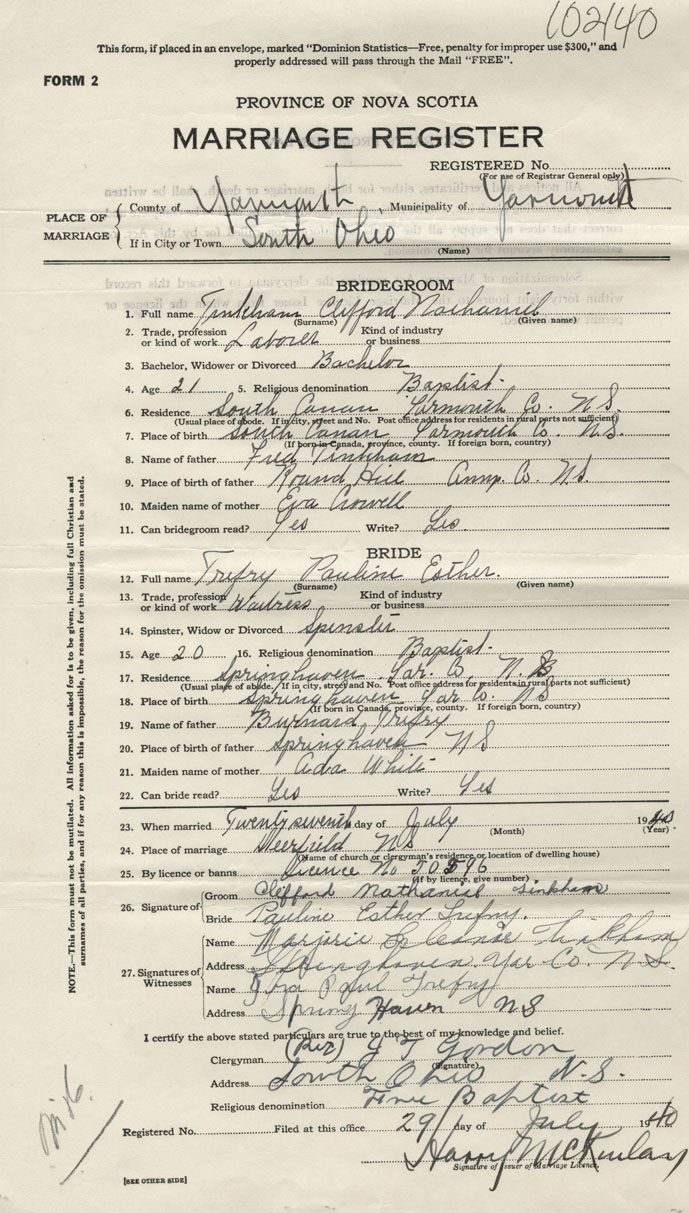 102140
This form, if placed in an envelope, marked "Dominion Statistics—Free, penalty for improper use $300," and
properly addressed will pass through the Mail "FREE".
FORM 2
PROVINCE OF NOVA SCOTIA
MARRIAGE REGISTER
REGISTERED No.
(For use of Registrar General only)
PLACE OF MARRIAGE
County of Yarmouth Municipality of Yarmouth
If in City or Town South Ohio
(Name)
BRIDEGROOM
1. Full name Tinkham Clifford Nathaniel
(Surname) (Given name)
2. Trade, profession or kind of work Laborer Kind of industry or business
3. Bachelor, Widower or Divorced Bachelor
4. Age 21 5. Religious denomination Baptist
6. Residence South Canan Yarmouth Co. N.S.
(Usual place of abode. If in city, street and No. Post office address for residents in rural parts not sufficient)
7. Place of birth South Canan Yarmouth Co. N.S.
(If born in Canada, province, county. If foreign born, county)
8. Name of father Fred Tinkham
9. Place of birth of father Round Hill Anna. Co. N.S.
10. Maiden name of mother Eva Crowell
11. Can bridegroom read? Yes Write? Yes
BRIDE
12. Full name Trefry Pauline Esther.
(Surname) (Given name)
13. Trade, profession or kind of work Waitress Kind of industry or business
14. Spinster, Widow or Divorced Spinster
15. Age 20 16. Religious denomination Baptist
17. Residence Springhaven Yar. Co. N.S
(Usual place of abode. If in city, street and No. Post office address for residents in rural parts not sufficient)
18. Place of birth Springhaven Yar Co. NS
(If born in Canada, province, county. If foreign born, country)
19. Name of father Burnard Trefry
20. Place of birth of father Springhaven NS
21. Maiden name of mother Ada White
22. Can bride read? Yes Write? Yes
23. When married Twenty seventh day of July 1940
(Month) (Year)
24. Place of marriage Deerfield NS
(Name of church or clergyman's residence or location of dwelling house)
25. By licence or banns Licence No 50596
(If by licence, give number)
26. Signature of
Groom Clifford Nathanial Tinkham
Bride Pauline Esther Trefry.
27. Signatures of Witnesses
Name Marjorie Tinkham
Address Springhaven Yar Co N.S.
Name Ira Paul Trefry
Address Spring Haven NS
I certify the above stated particulars are true to the best of my knowledge and belief.
Clergyman (Rev) J T Gordon
(Signature)
Address South Ohio N.S.
Religious denomination Free Baptist
Registered No. Filed at this office 29 day of July 1940
Harry McKinlay
Signature of Issuer of Marriage Licence.
[SEE OTHER SIDE]
NOTE.—This form must not be mutilated. All information asked for is to be given, including full Christian and
surnames of all parties, and if for any reason this is impossible, the reason for the omission must be stated.